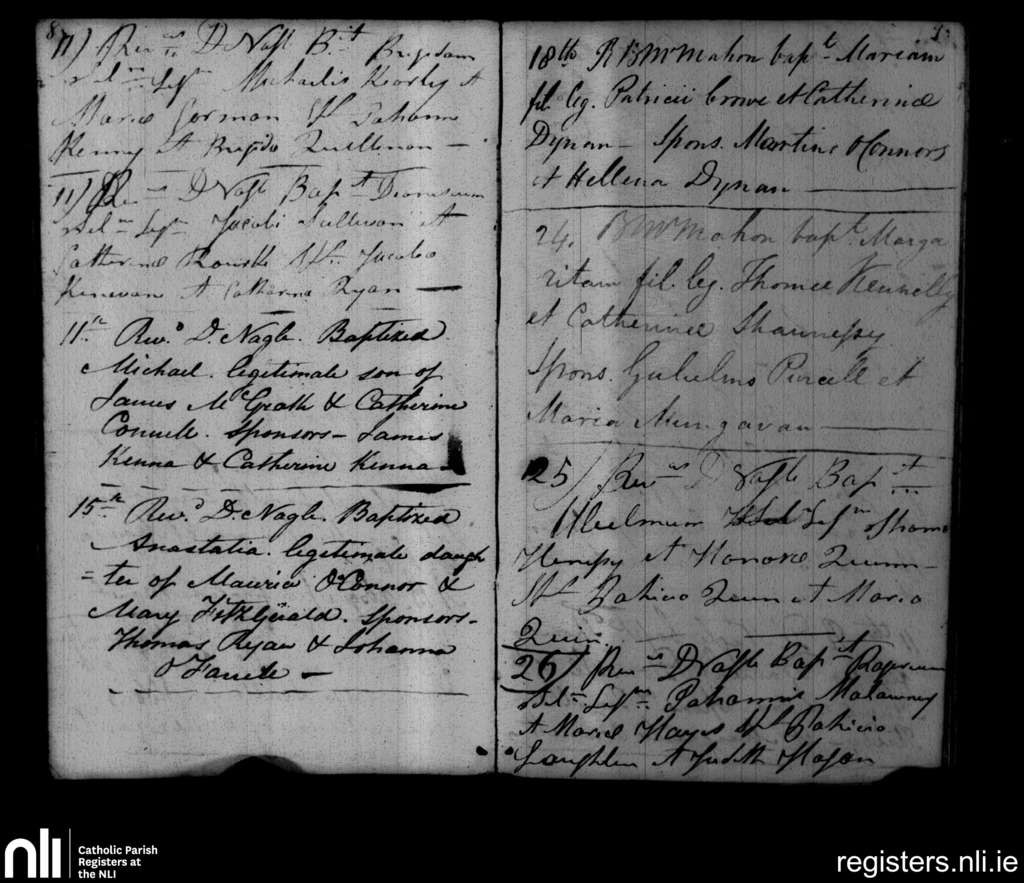 8
11) Revdus D Nagle Bapit Brigidam
Filam Legm Michaelis Kearly et
Mariæ Gorman Sp Johanne
Kenny et Brigida Quillinan —
11) Revus D Nagle Bapit Dionisium
Filum Legm Jacobi Sullivan et
Catherinæ Rourke Sp Jacobo
et Catharina Ryan —
11th Revd D. Nagle. Baptized
Michael. legitimate son of
James McGrath & Catherine
Connell. Sponsors — James
Kenna & Catherine Kenna —
15th Revd D. Nagle. Baptized
Anastatia. legitimate daugh
= ter of Maurice O'Connor &
Mary FitzGerald. Sponsors —
Thomas Ryan & Johanna
O'Farrell —
18th R B McMahon bapt Mariam
fil. leg. Patricii Crowe et Catherinæ
Dynan — Spons. Martins O'Connors
et Hellena Dynan
24. B McMahon bapt. Marga
ritam fil. leg. Thomæ Kennelly
et Catherinæ Shaunessy
Spons. Gulielms Purcell et
Maria Mungavan
25/ Revus D Nagle Bapit
Legm Thoma
et Honoræ Quinn —
Patricio Quin et Maria
Quin
26/ Revus D Nagle Bapit Rogerium
Filum Legm Johannis Malawney
et Mariæ Hayes Sp Patricio
Laughlin et Judith Hogan
nli
Catholic Parish
Registers at
the NLI
registers.nli.ie